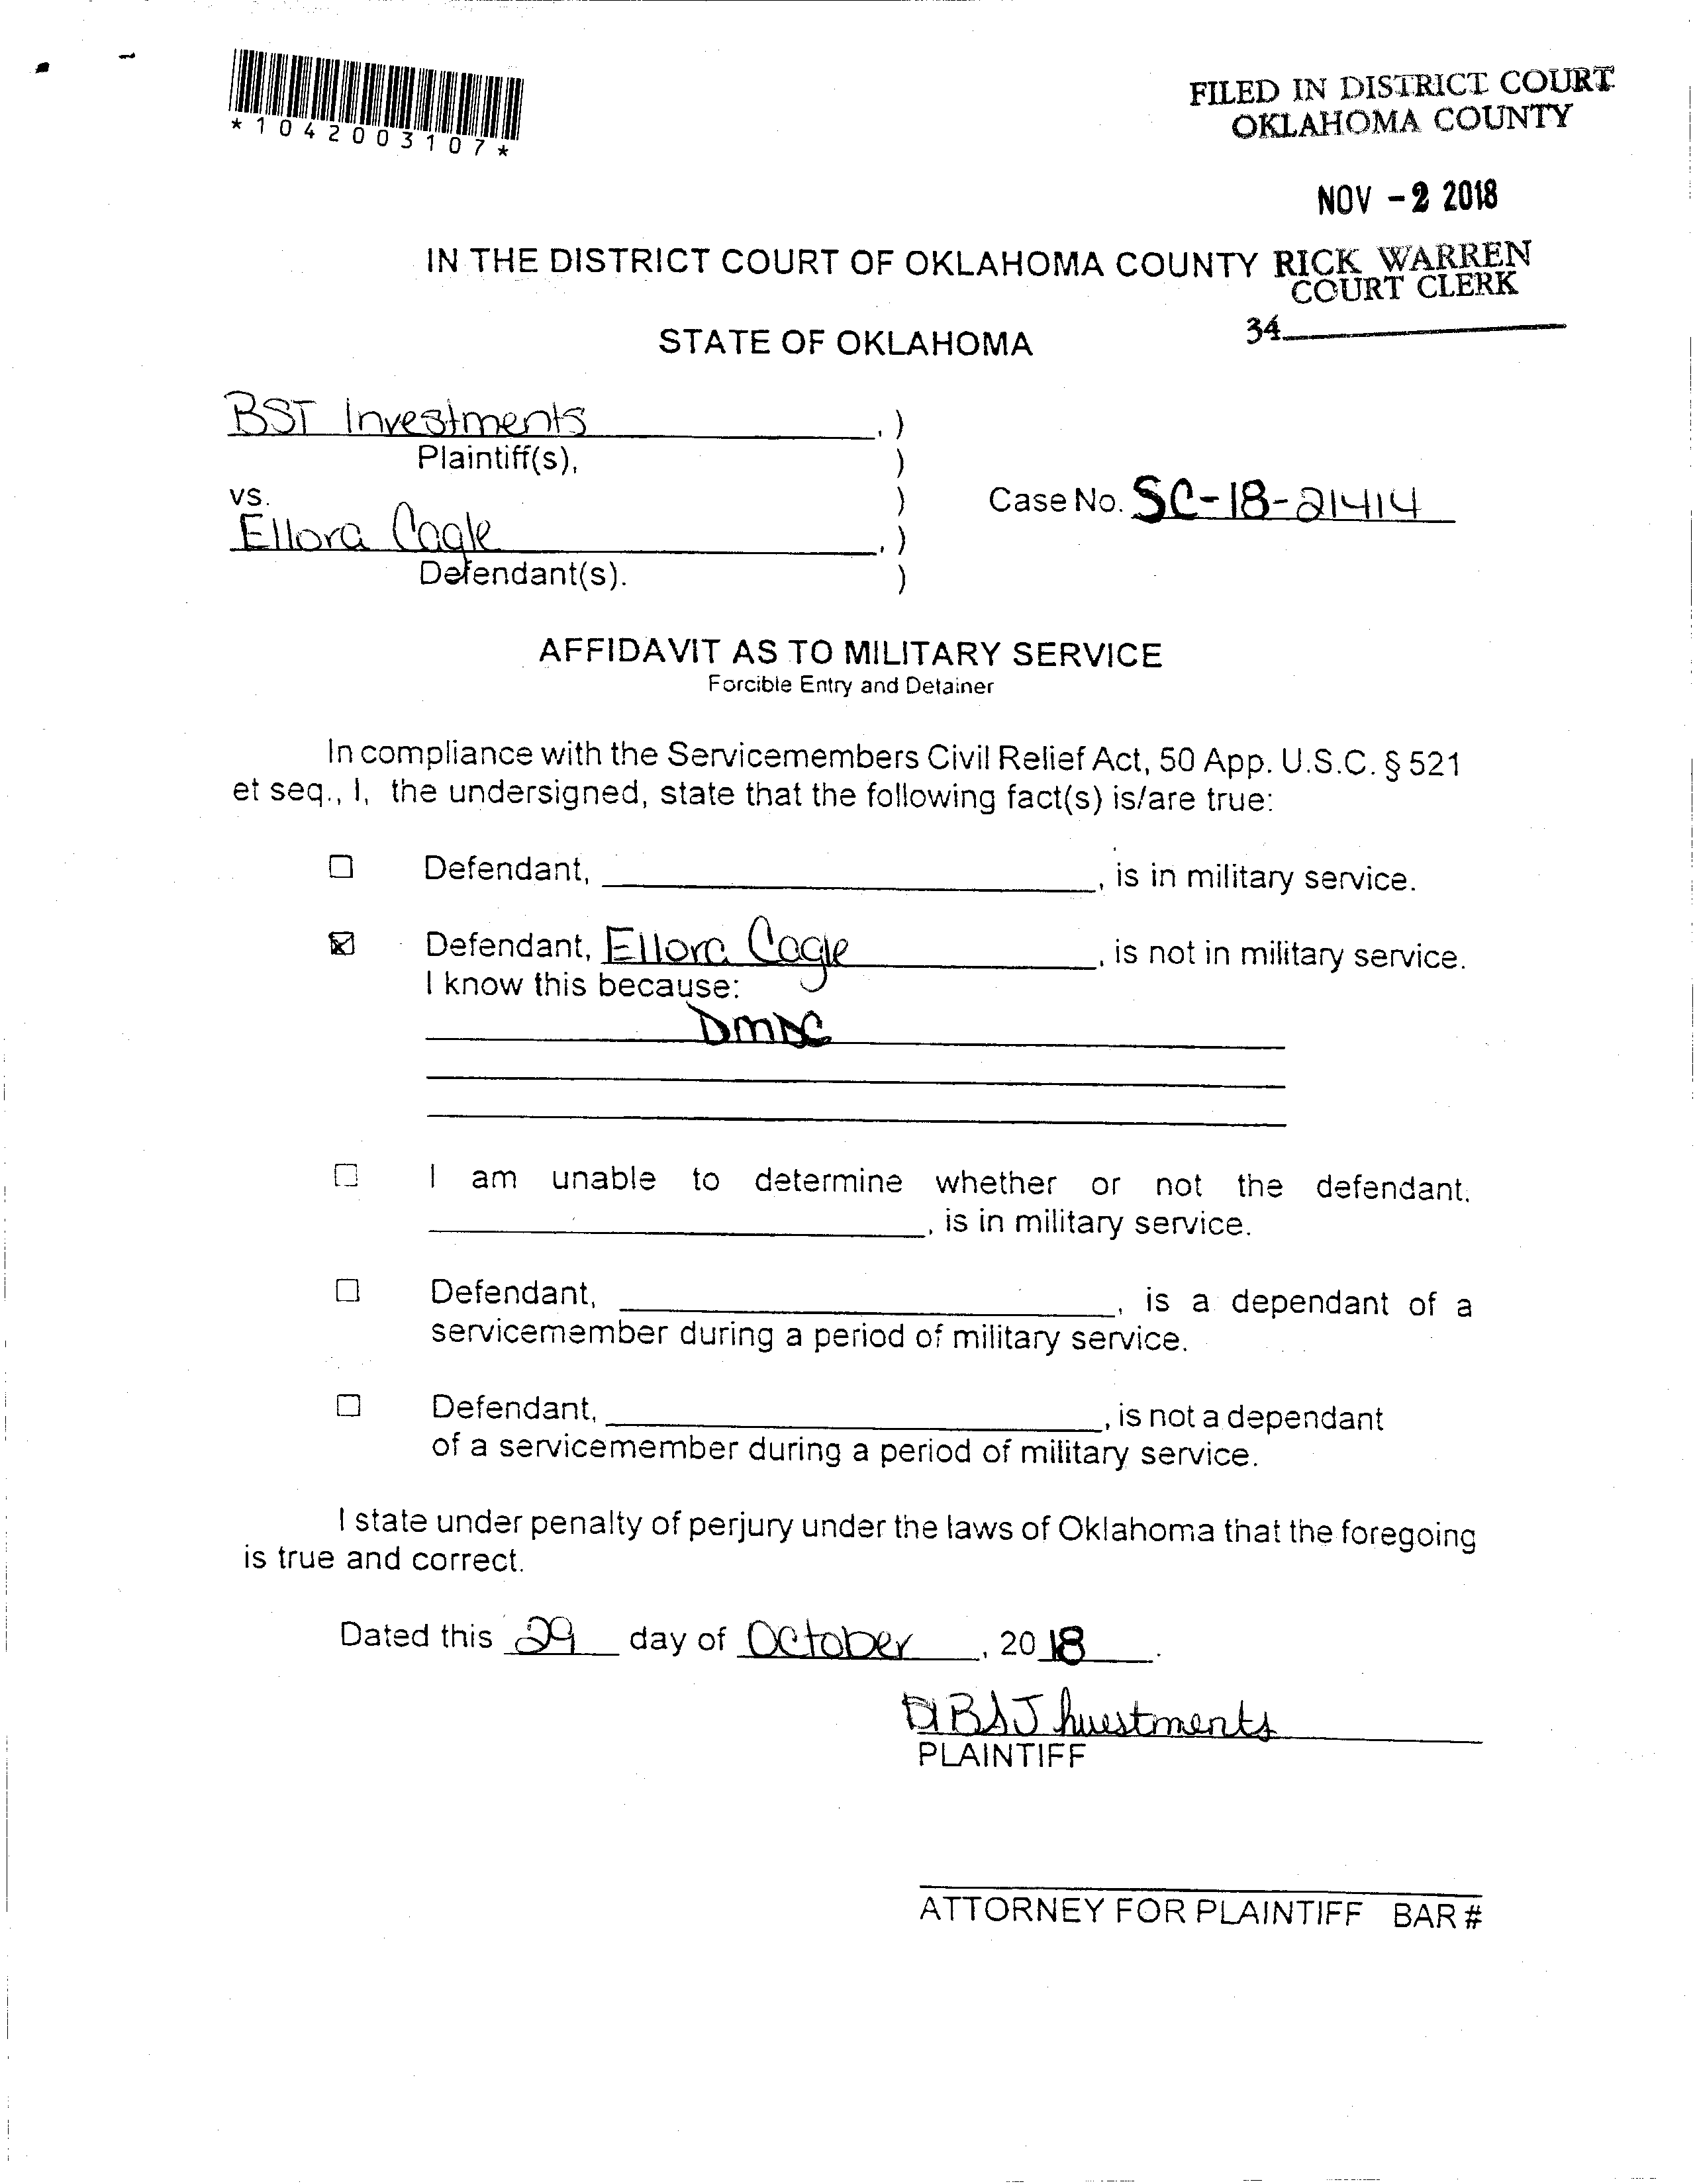 *1042003107*
FILED IN DISTRICT COURT
OKLAHOMA COUNTY
NOV -2 2018
IN THE DISTRICT COURT OF OKLAHOMA COUNTY RICK WARREN
COURT CLERK
STATE OF OKLAHOMA
34
BST Investments , )
Plaintiff(s), )
vs. )
Case No. SC-18-21414
Ellora Cagle , )
Defendant(s). )
AFFIDAVIT AS TO MILITARY SERVICE
Forcible Entry and Detainer
In compliance with the Servicemembers Civil Relief Act, 50 App. U.S.C. § 521
et seq., I, the undersigned, state that the following fact(s) is/are true:
☐ Defendant, , is in military service.
☒ Defendant, Ellora Cagle , is not in military service.
I know this because:
DMDC
☐ I am unable to determine whether or not the defendant,
, is in military service.
☐ Defendant, , is a dependant of a
servicemember during a period of military service.
☐ Defendant, , is not a dependant
of a servicemember during a period of military service.
I state under penalty of perjury under the laws of Oklahoma that the foregoing
is true and correct.
Dated this 29 day of October , 20 18 .
Investments
PLAINTIFF
ATTORNEY FOR PLAINTIFF BAR #